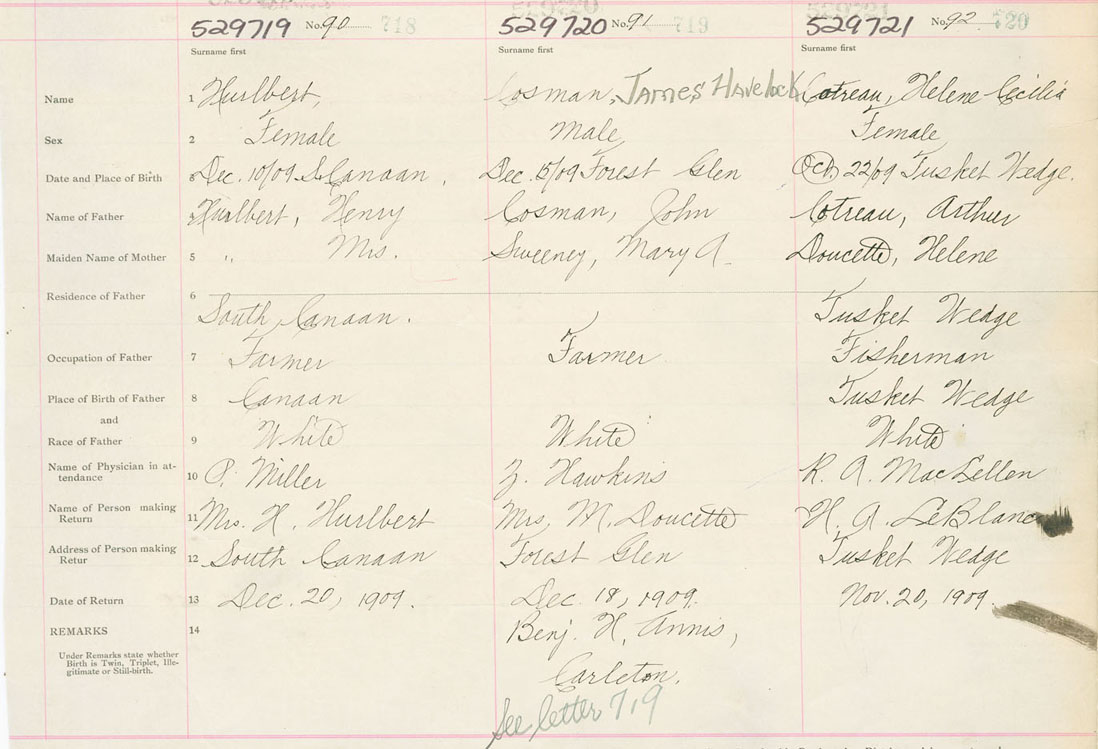 529719 No. 90 718 529720 No. 91 719 529721 No. 92 720
Surname first Surname first Surname first
Name 1 Hurlbert, Cosman, James Havelock Cotreau, Helene Cecilia
Sex 2 Female Male Female
Date and Place of Birth 3 Dec. 10/09 S. Canaan. Dec. 15/09 Forest Glen Oct 22/09 Tusket Wedge.
Name of Father 4 Hurlbert, Henry Cosman, John Cotreau, Arthur
Maiden Name of Mother 5 " Mrs. Sweeney, Mary A. Doucette, Helene
Residence of Father 6 South Canaan. Tusket Wedge
Occupation of Father 7 Farmer Farmer Fisherman
Place of Birth of Father 8 Canaan Tusket Wedge
and
Race of Father 9 White White White
Name of Physician in at-
tendance 10 P. Miller Z. Hawkins R. A. MacLellen
Name of Person making
Return 11 Mrs. H. Hurlbert Mrs, M. Doucette H. A. LeBlanc
Address of Person making
Retur 12 South Canaan Forest Glen Tusket Wedge
Date of Return 13 Dec. 20, 1909. Dec. 18, 1909. Nov. 20, 1909.
REMARKS 14 Benj. H. Annis,
Under Remarks state whether
Birth is Twin, Triplet, Ille-
gitimate or Still-birth.
Carleton.
See letter 719